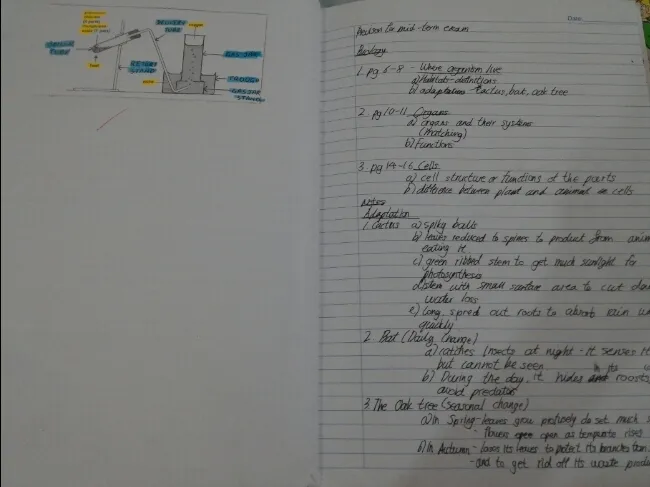 DELIVERY TUBE
oxygen
GAS JAR
TEST TUBE
heat
RETORT STAND
water
TROUGH
Date
Revision for mid-term exams
Biology
1. pg 6-8 - Where organism live
a) Habitats-definitions
b) adaptations cactus, bat, oak tree
2. pg 10-11 Organs
a) organs and their systems
(matching)
b) Functions
3. pg 14-16 Cells
a) cell structure or functions of the parts
b) difference between plant and animal cells
Notes
Adaptation
1. Cactus a) spiky balls
b) leaves reduced to spines to product from
eating it
c) green ribbed stem to get much sunlight for
photosynthesis
d) stem with small surface area to cut
water loss
e) long spred out roots to absorb rain
quickly
2. Bat (Daily change)
a) catches insects at night - it senses
but cannot be seen
b) During the day, it hides in its roosts
avoid predators
3. The Oak tree (seasonal change)
a) In Spring - leaves grow to get much
flowers open as temperature rises
b) In Autumn - loses its leaves to protect its branches from
- and to get rid off its waste